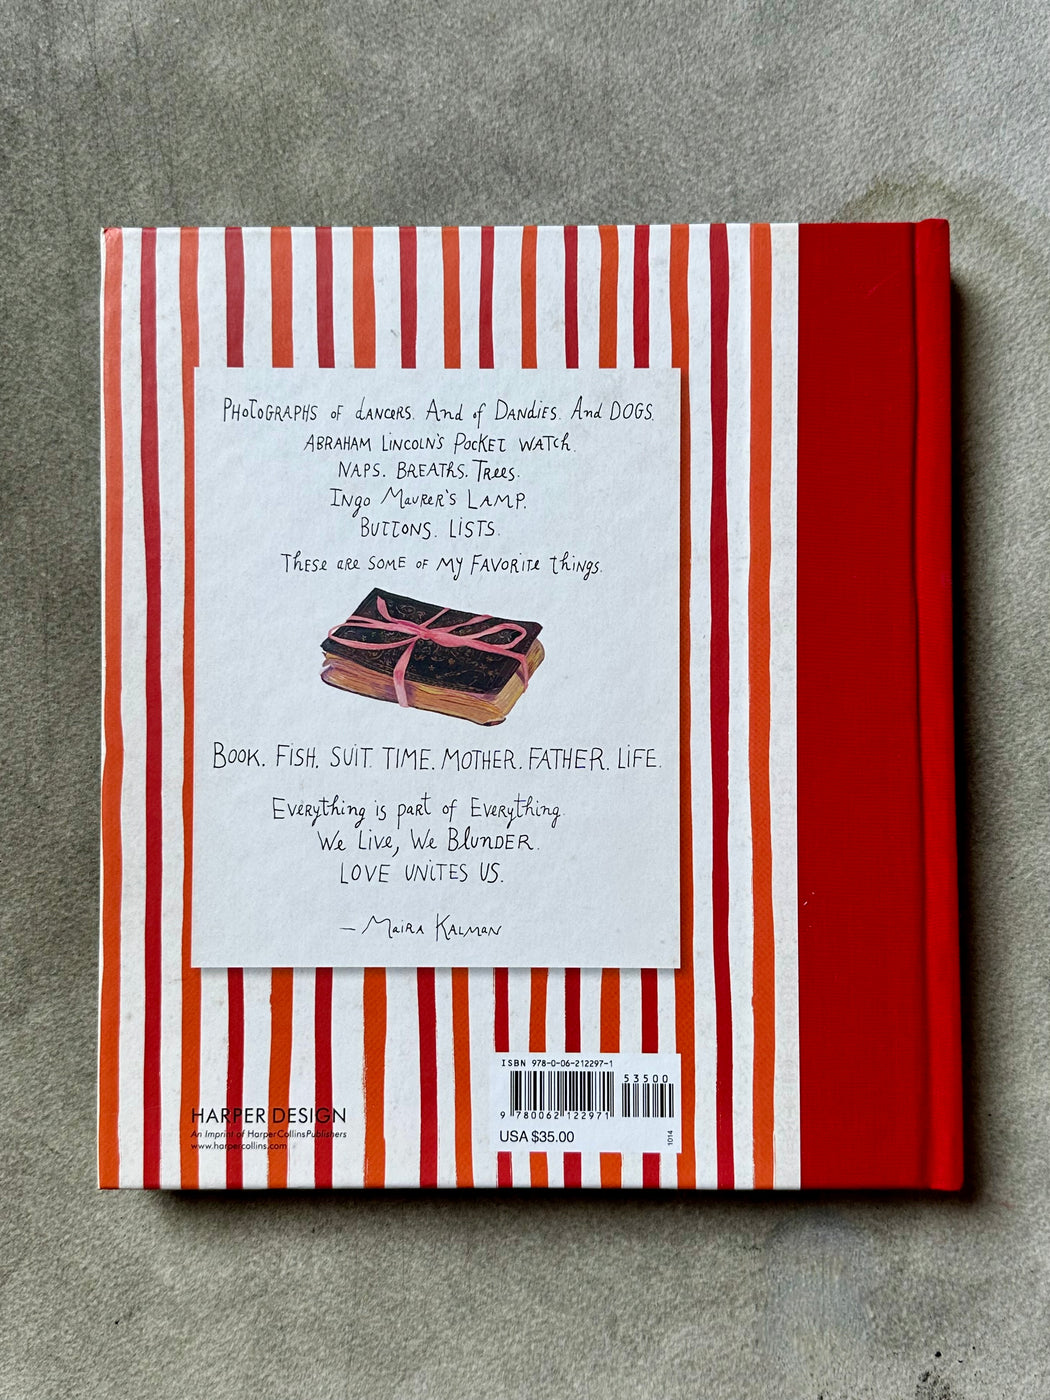 PHOTOGRAPHS OF DANCERS. AND OF DANDIES. AND DOGS.
ABRAHAM LINCOLN'S POCKET WATCH.
NAPS. BREATHS. TREES.
INGO MAURER'S LAMP.
BUTTONS. LISTS.
THESE ARE SOME OF MY FAVORITE THINGS.
BOOK. FISH. SUIT. TIME. MOTHER. FATHER. LIFE.
EVERYTHING IS PART OF EVERYTHING.
WE LIVE, WE BLUNDER.
LOVE UNITES US.
— MAIRA KALMAN
ISBN 978-0-06-212297-1
53500
9 780062 122971
USA $35.00
1014
HARPER DESIGN
An Imprint of HarperCollinsPublishers
www.harpercollins.com